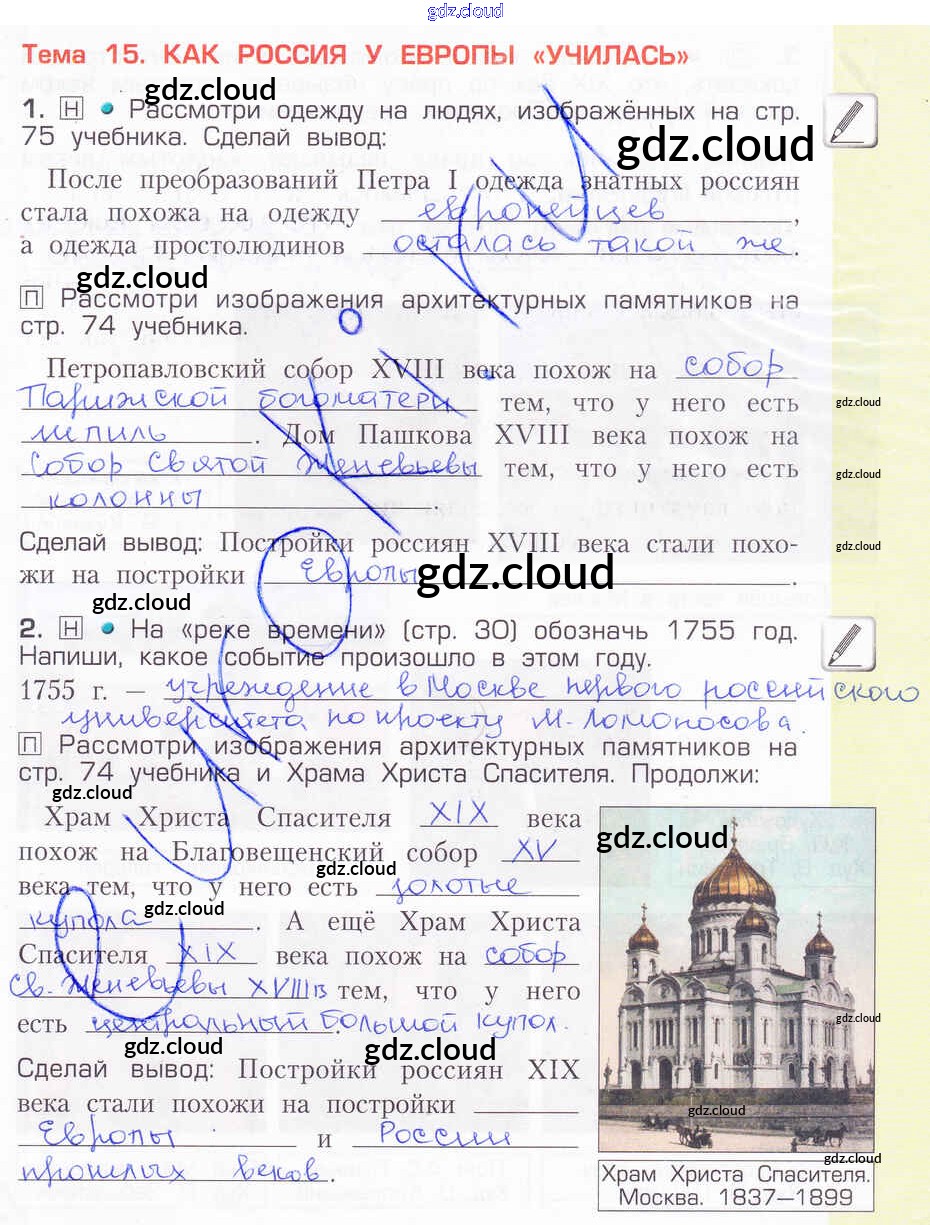 gdz.cloud
Тема 15. КАК РОССИЯ У ЕВРОПЫ «УЧИЛАСЬ»
gdz.cloud
1. Н • Рассмотри одежду на людях, изображённых на стр.
75 учебника. Сделай вывод:
gdz.cloud
После преобразований Петра I одежда знатных россиян
стала похожа на одежду европейцев,
а одежда простолюдинов осталась такой же.
gdz.cloud
П Рассмотри изображения архитектурных памятников на
стр. 74 учебника.
Петропавловский собор XVIII века похож на собор
Парижской богоматери тем, что у него есть
gdz.cloud
шпиль. Дом Пашкова XVIII века похож на
собор Святой Женевьевы тем, что у него есть
gdz.cloud
колонны.
Сделай вывод: Постройки россиян XVIII века стали похо-
gdz.cloud
жи на постройки Европы.
gdz.cloud
gdz.cloud
2. Н • На «реке времени» (стр. 30) обозначь 1755 год.
Напиши, какое событие произошло в этом году.
1755 г. – учреждение в Москве первого российского
университета по проекту М. Ломоносова.
П Рассмотри изображения архитектурных памятников на
стр. 74 учебника и Храма Христа Спасителя. Продолжи:
gdz.cloud
Храм Христа Спасителя XIX века
gdz.cloud
похож на Благовещенский собор XV
века тем, что у него есть золотые
gdz.cloud
купола. А ещё Храм Христа
Спасителя XIX века похож на собор
Св. Женевьевы XVIII в тем, что у него
есть центральный большой купол.
gdz.cloud
gdz.cloud
gdz.cloud
Сделай вывод: Постройки россиян XIX
века стали похожи на постройки
gdz.cloud
Европы и России
прошлых веков.
gdz.cloud
Храм Христа Спасителя.
Москва. 1837—1899